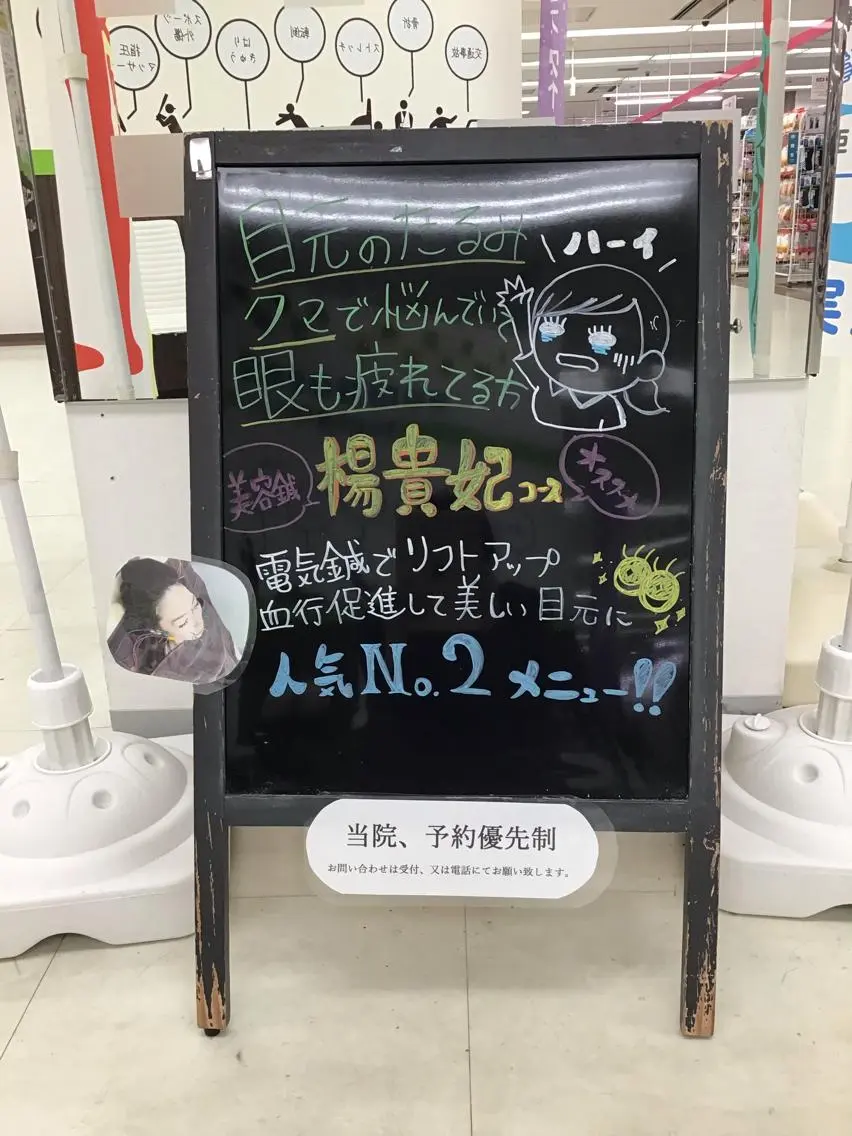 指圧
マッサー
スポーツ
外傷
はり
きゅう
転倒
ストレッチ
骨折
交通事故
目元のたるみ
クマで悩んでいて
眼も疲れてる方
\ハーイ/
美容鍼
楊貴妃コース
オススメ
電気鍼でリフトアップ
血行促進して美しい目元に
人気No.2メニュー!!
当院、予約優先制
お問い合わせは受付、又は電話にてお願い致します。